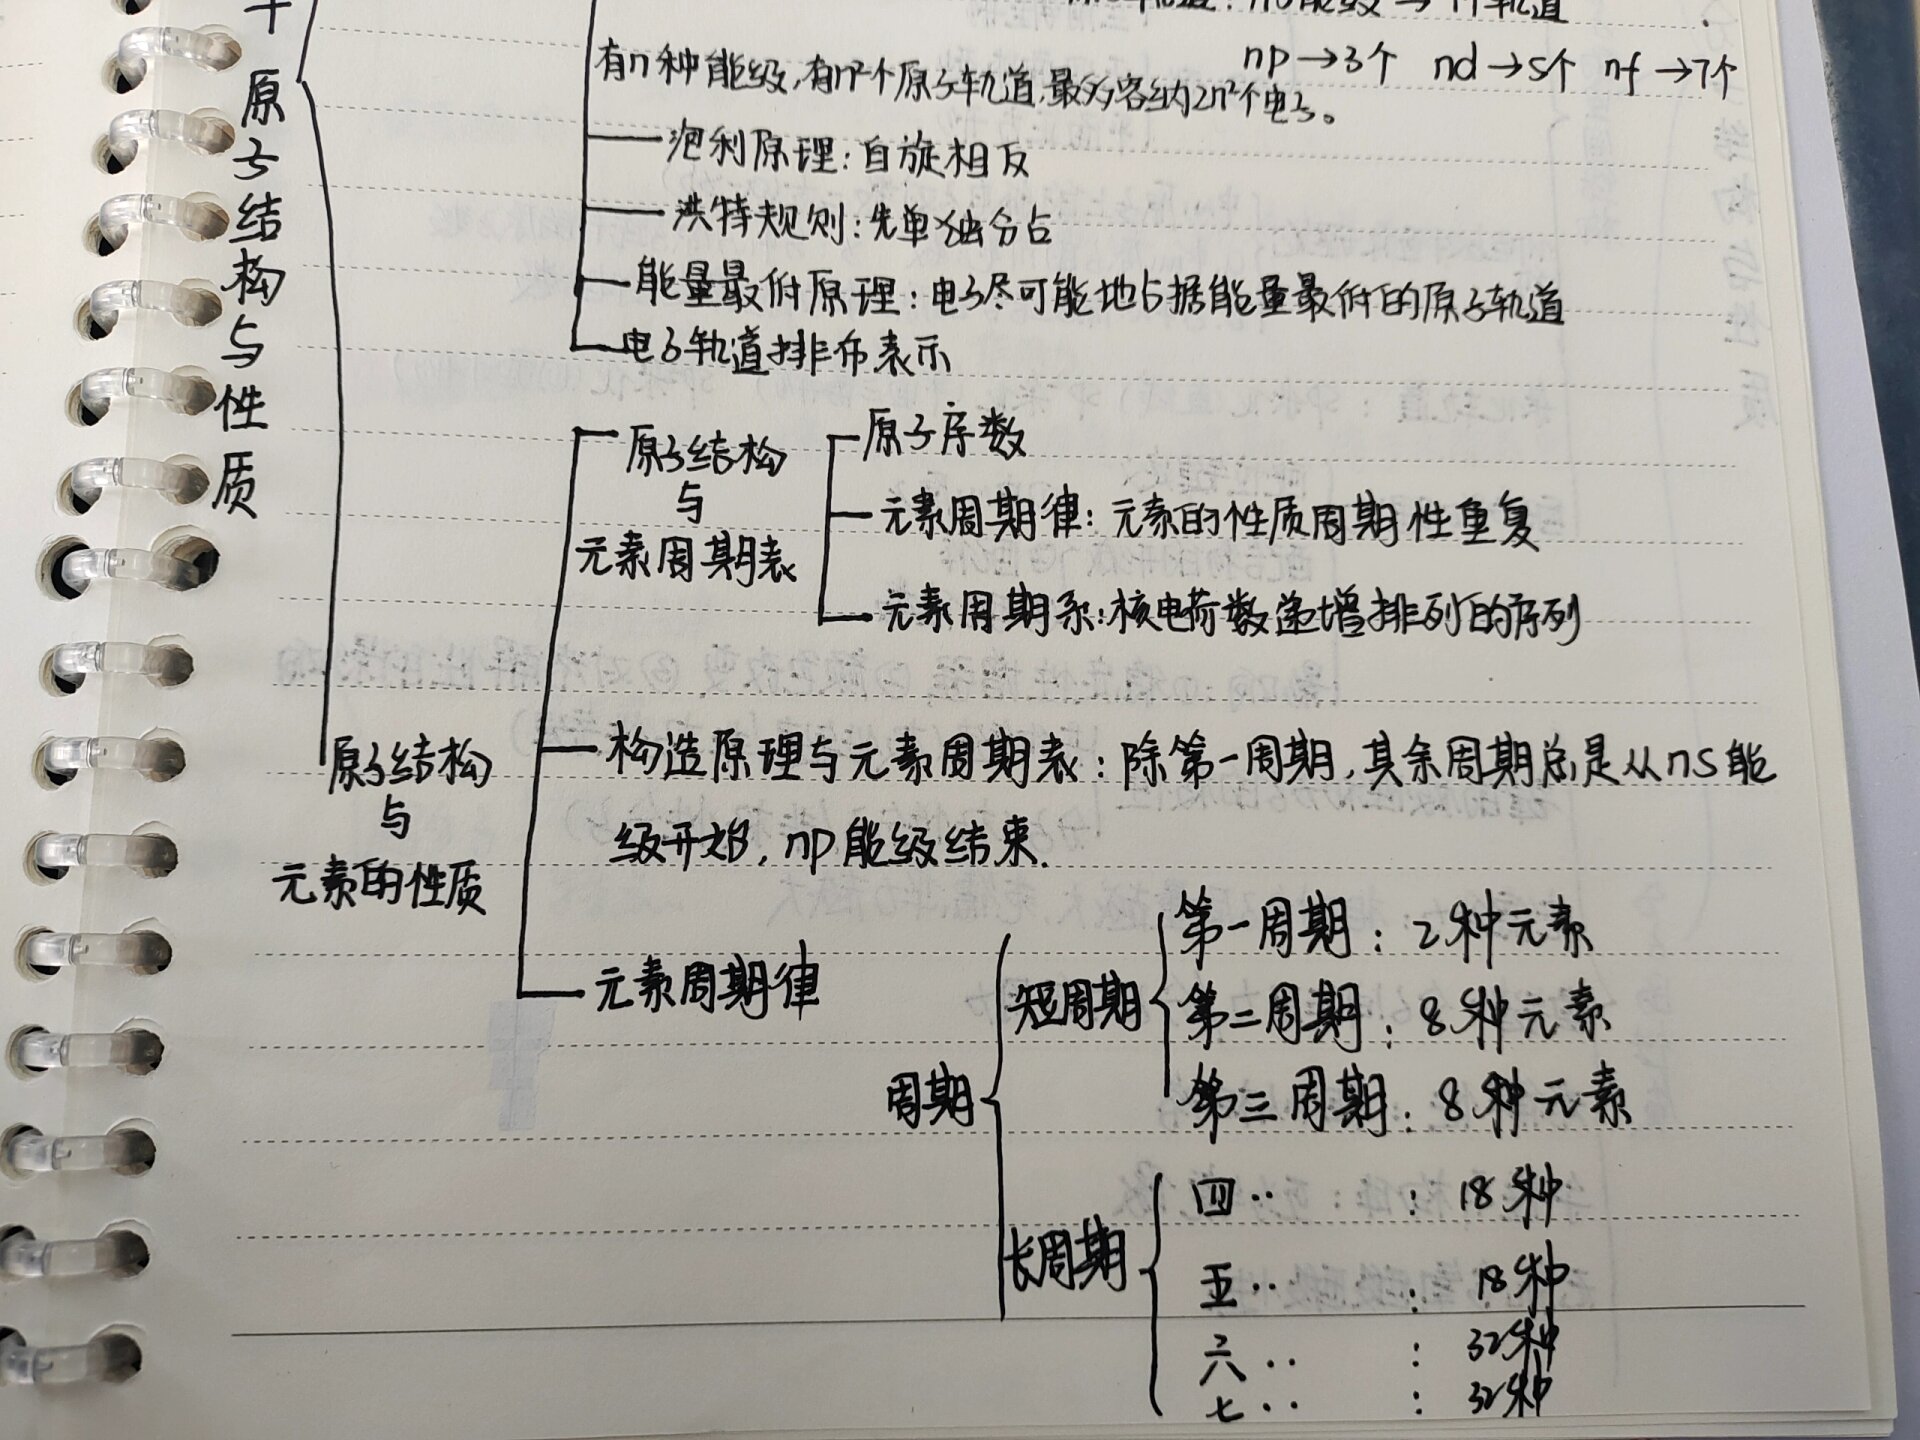 原子结构与性质
ns能级→1个轨道
np→3个 nd→5个 nf→7个
有n种能级,有n²个原子轨道,最多容纳2n²个电子。
泡利原理:自旋相反
洪特规则:先单独分占
能量最低原理:电子尽可能地占据能量最低的原子轨道
电子轨道排布表示
原子结构
与
元素周期表
原子序数
元素周期律:元素的性质周期性重复
元素周期系:核电荷数递增排列的序列
原子结构
与
元素的性质
构造原理与元素周期表:除第一周期,其余周期总是从ns能
级开始,np能级结束.
元素周期律
周期
短周期
第一周期:2种元素
第二周期:8种元素
第三周期:8种元素
长周期
四‥:18种
五‥:18种
六‥:32种
七‥:32种